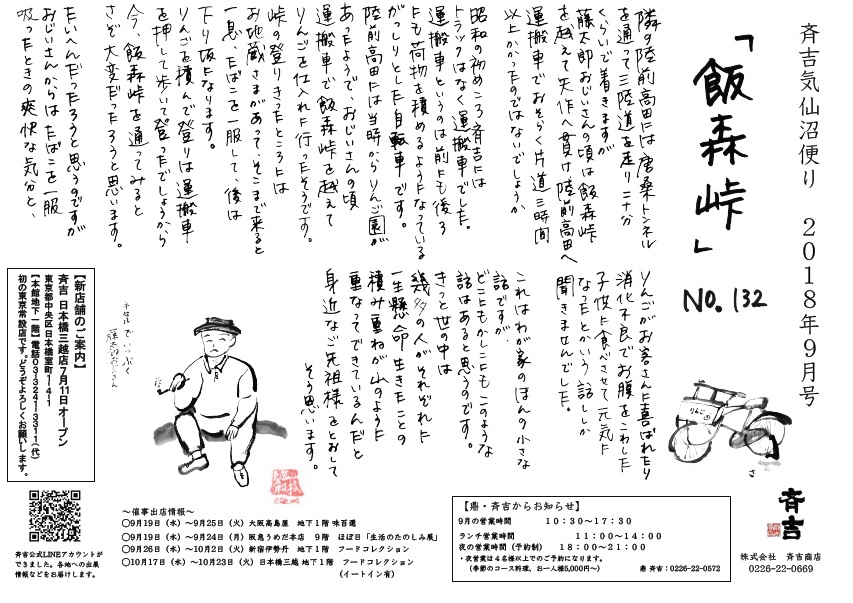 斉吉気仙沼便り 2018年9月号
「飯森峠」
No.132
隣の陸前高田には唐桑トンネル
を通って三陸道を走り二十分
くらいで着きますが
藤太郎おじいさんの頃は飯森峠
を越えて矢作へ貫け陸前高田へ
運搬車でおそらく片道三時間
以上かかったのではないでしょうか
昭和の初めころ斉吉には
トラックはなく運搬車でした。
運搬車というのは前にも後ろ
にも荷物を積めるようになっている
がっしりとした自転車です。
陸前高田には当時からりんご園が
あったようで、おじいさんの頃
運搬車で飯森峠を越えて
りんごを仕入れに行ったそうです。
峠の登りきったところには
お地蔵さまがあって、そこまで来ると
一息、たばこを一服して、後は
下り坂になります。
りんごを積んで登りは運搬車
を押して歩いて登ったでしょうから
今、飯森峠を通ってみると
さぞ大変だったろうと思います。
たいへんだったろうと思うのですが
おじいさんからはたばこを一服
吸ったときの爽快な気分と、
りんごがお客さんに喜ばれたり
消化不良でお腹をこわした
子供に食べさせて元気に
なったとかいう話しか
聞きませんでした。
これはわが家のほんの小さな
話ですが、
どこにもかしこにもこのような
話はあると思うのです。
きっと世の中は
幾多の人がそれぞれに
一生懸命生きたことの
積み重ねが山のように
重なってできているんだと
身近なご先祖様をとおして
そう思います。
りんご
さ
キセルでいっぷく
藤太郎おじいさん
【新店舗のご案内】
斉吉 日本橋三越店 7月11日オープン
東京都中央区日本橋室町1-4-1
【本館地下一階】電話03-3241-3311(代)
初の東京常設店です。どうぞよろしくお願いします。
斉吉公式LINEアカウントが
できました。各地への出展
情報などをお届けします。
~催事出店情報~
〇9月19日(水)~9月25日(火)大阪高島屋 地下1階 味百選
〇9月19日(水)~9月24日(月)阪急うめだ本店 9階 ほぼ日「生活のたのしみ展」
〇9月26日(水)~10月2日(火)新宿伊勢丹 地下1階 フードコレクション
〇10月17日(水)~10月23日(火)日本橋三越 地下1階 フードコレクション
(イートイン有)
【鼎・斉吉からお知らせ】
9月の営業時間 10:30~17:30
ランチ営業時間 11:00~14:00
夜の営業時間(予約制) 18:00~21:00
・夜営業は4名様以上でのご予約になります。
(季節のコース料理、お一人様5,000円~) 鼎 斉吉:0226-22-0572
斉吉
株式会社 斉吉商店
0226-22-0669